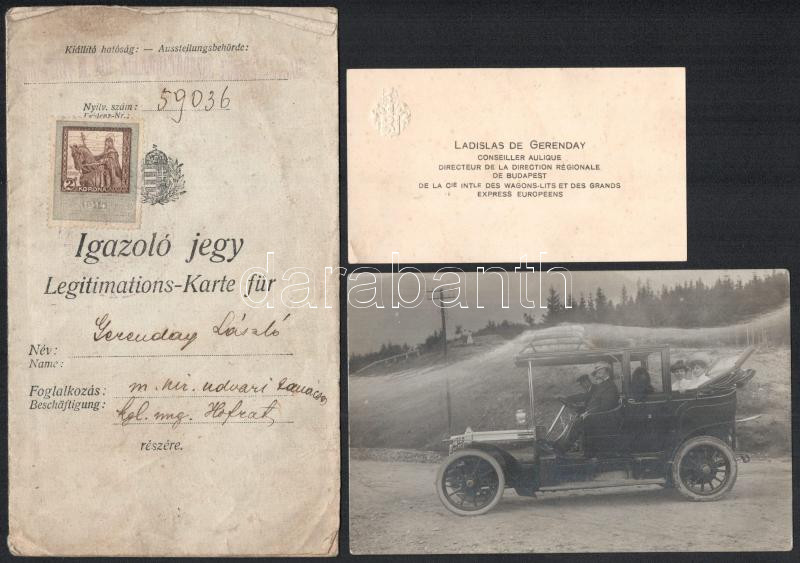 Kiállító hatóság: — Ausstellungsbehörde:
Nyilv. szám: 59036
2 KORONA
1914
Igazoló jegy
Legitimations-Karte für
Gerenday László
Név:
Name:
Foglalkozás: m. kir. udvari
Beschäftigung: Kgl. ung. Hofrat
részére.
LADISLAS DE GERENDAY
CONSEILLER AULIQUE
DIRECTEUR DE LA DIRECTION RÉGIONALE
DE BUDAPEST
DE LA CIE INTLE DES WAGONS-LITS ET DES GRANDS
EXPRESS EUROPÉENS
darabanth.com